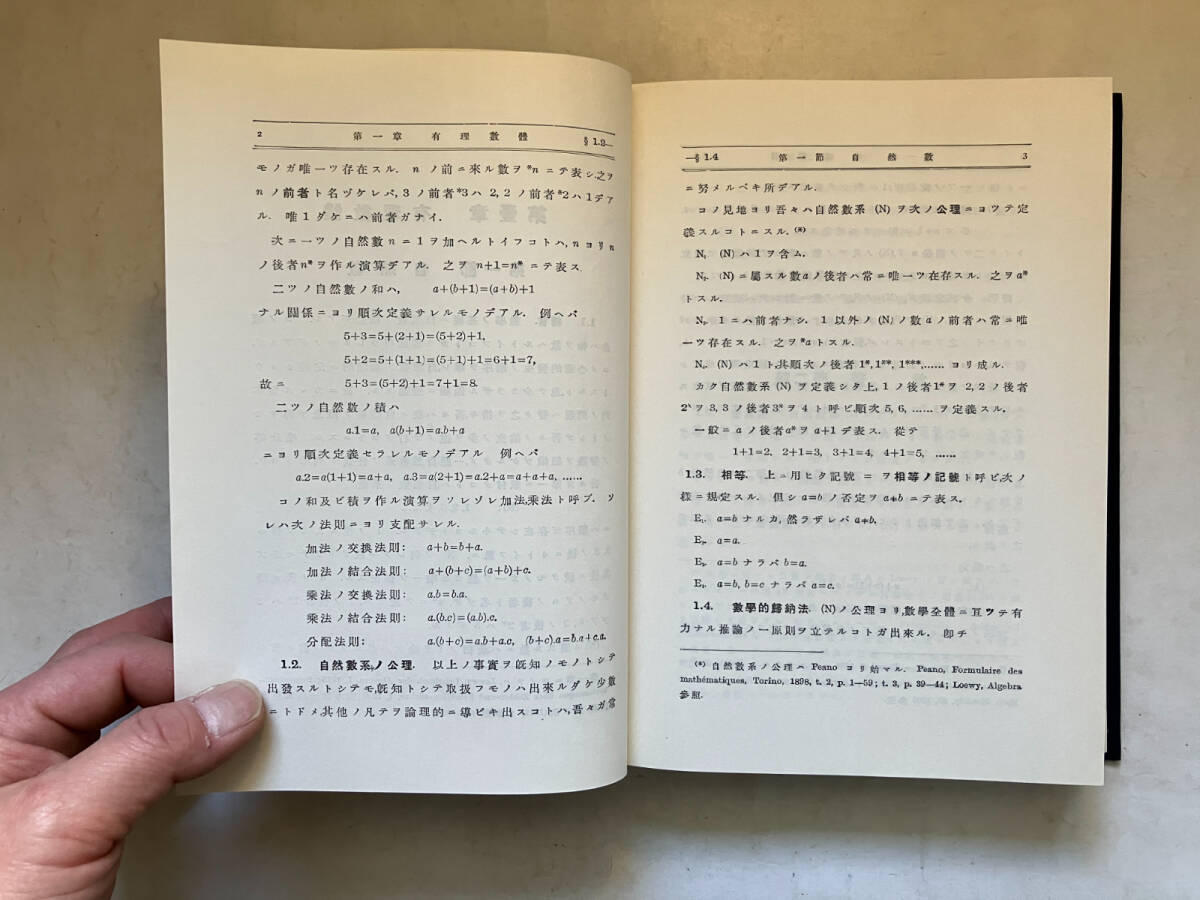 2 第一章 有理數體 §1.2—
モノガ唯一ツ存在スル. nノ前ニ來ル數ヲ *n ニテ表シ之ヲ
nノ前者ト名ヅケレバ, 3ノ前者*3ハ2, 2ノ前者*2ハ1デア
ル. 唯1ダケニハ前者ガナイ.
次ニ一ツノ自然數nニ1ヲ加ヘルトイフコトハ, nヨリn
ノ後者n*ヲ作ル演算デアル. 之ヲ n+1=n* ニテ表ス
二ツノ自然數ノ和ハ, a+(b+1)=(a+b)+1
ナル關係ニヨリ順次定義サレルモノデアル. 例ヘバ
5+3=5+(2+1)=(5+2)+1,
5+2=5+(1+1)=(5+1)+1=6+1=7,
故ニ 5+3=(5+2)+1=7+1=8.
二ツノ自然數ノ積ハ
a.1=a, a(b+1)=a.b+a
ニヨリ順次定義セラレルモノデアル 例ヘバ
a.2=a(1+1)=a+a, a.3=a(2+1)=a.2+a=a+a+a, ......
コノ和及ビ積ヲ作ル演算ヲソレゾレ加法,乘法ト呼ブ. ソ
レハ次ノ法則ニヨリ支配サレル.
加法ノ交換法則: a+b=b+a.
加法ノ結合法則: a+(b+c)=(a+b)+c.
乘法ノ交換法則: a.b=b.a.
乘法ノ結合法則: a.(b.c)=(a.b).c.
分配法則: a.(b+c)=a.b+a.c, (b+c).a=b.a+c.a.
1.2. 自然數系ノ公理. 以上ノ事實ヲ既知ノモノトシテ
出發スルトシテモ,既知トシテ取扱フモノハ出來ルダケ少數
ニトドメ,其他ノ凡テヲ論理的ニ導ビキ出スコトハ,吾々ガ常
—§1.4 第一節 自然數 3
ニ努メルベキ所デアル.
コノ見地ヨリ吾々ハ自然數系 (N) ヲ次ノ公理ニヨツテ定
義スルコトニスル. (*)
N₁. (N) ハ1ヲ含ム.
N₂. (N) ニ屬スル數aノ後者ハ常ニ唯一ツ在存スル. 之ヲa*
トスル.
N₃. 1ニハ前者ナシ. 1以外ノ (N) ノ數aノ前者ハ常ニ唯
一ツ存在スル. 之ヲ*aトスル.
N₄. (N) ハ1ト,其順次ノ後者 1*, 1**, 1***, ...... ヨリ成ル.
カク自然數系 (N) ヲ定義シタ上, 1ノ後者1*ヲ2, 2ノ後者
2*ヲ3, 3ノ後者3*ヲ4ト呼ビ,順次5, 6, ...... ヲ定義スル.
一般ニaノ後者a*ヲa+1デ表ス. 從テ
1+1=2, 2+1=3, 3+1=4, 4+1=5, ......
1.3. 相等. 上ニ用ヒタ記號 = ヲ相等ノ記號ト呼ビ,次ノ
樣ニ規定スル. 但シ a=b ノ否定ヲ a≠b ニテ表ス.
E₁. a=b ナルカ,然ラザレバ a≠b.
E₂. a=a.
E₃. a=b ナラバ b=a.
E₄. a=b, b=c ナラバ a=c.
1.4. 數學的歸納法. (N)ノ公理ヨリ,數學全體ニ亙ツテ有
力ナル推論ノ一原則ヲ立テルコトガ出來ル. 卽チ
(*) 自然數系ノ公理ハ Peano ヨリ始マル. Peano, Formulaire des
mathématiques, Torino, 1898, t. 2, p. 1—59; t. 3, p. 39—44; Loewy, Algebra
參照.